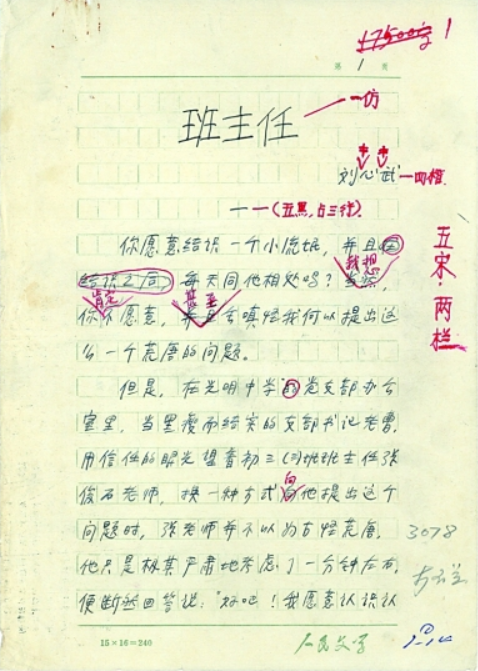 17500字 1
第 1 页
班主任
一仿
刘心武
一四楷
一(五黑,占三行)
你愿意结识一个小流氓,并且在
结识之同,每天同他相处吗?当然,
我想
肯定
甚至
你不愿意,并且会嗔怪我何以提出这
么一个荒唐的问题。
但是,在光明中学的党支部办公
室里,当黑瘦而结实的支部书记老曹,
用信任的眼光望着初三(3)班班主任张
俊石老师,换一种方式向他提出这个
问题时,张老师并不以为古怪荒唐。
他只是极其严肃地考虑了一分钟左右,
便断然回答说:“好吧!我愿意认识认
五宋·两栏
3078
15×16=240
人民文学